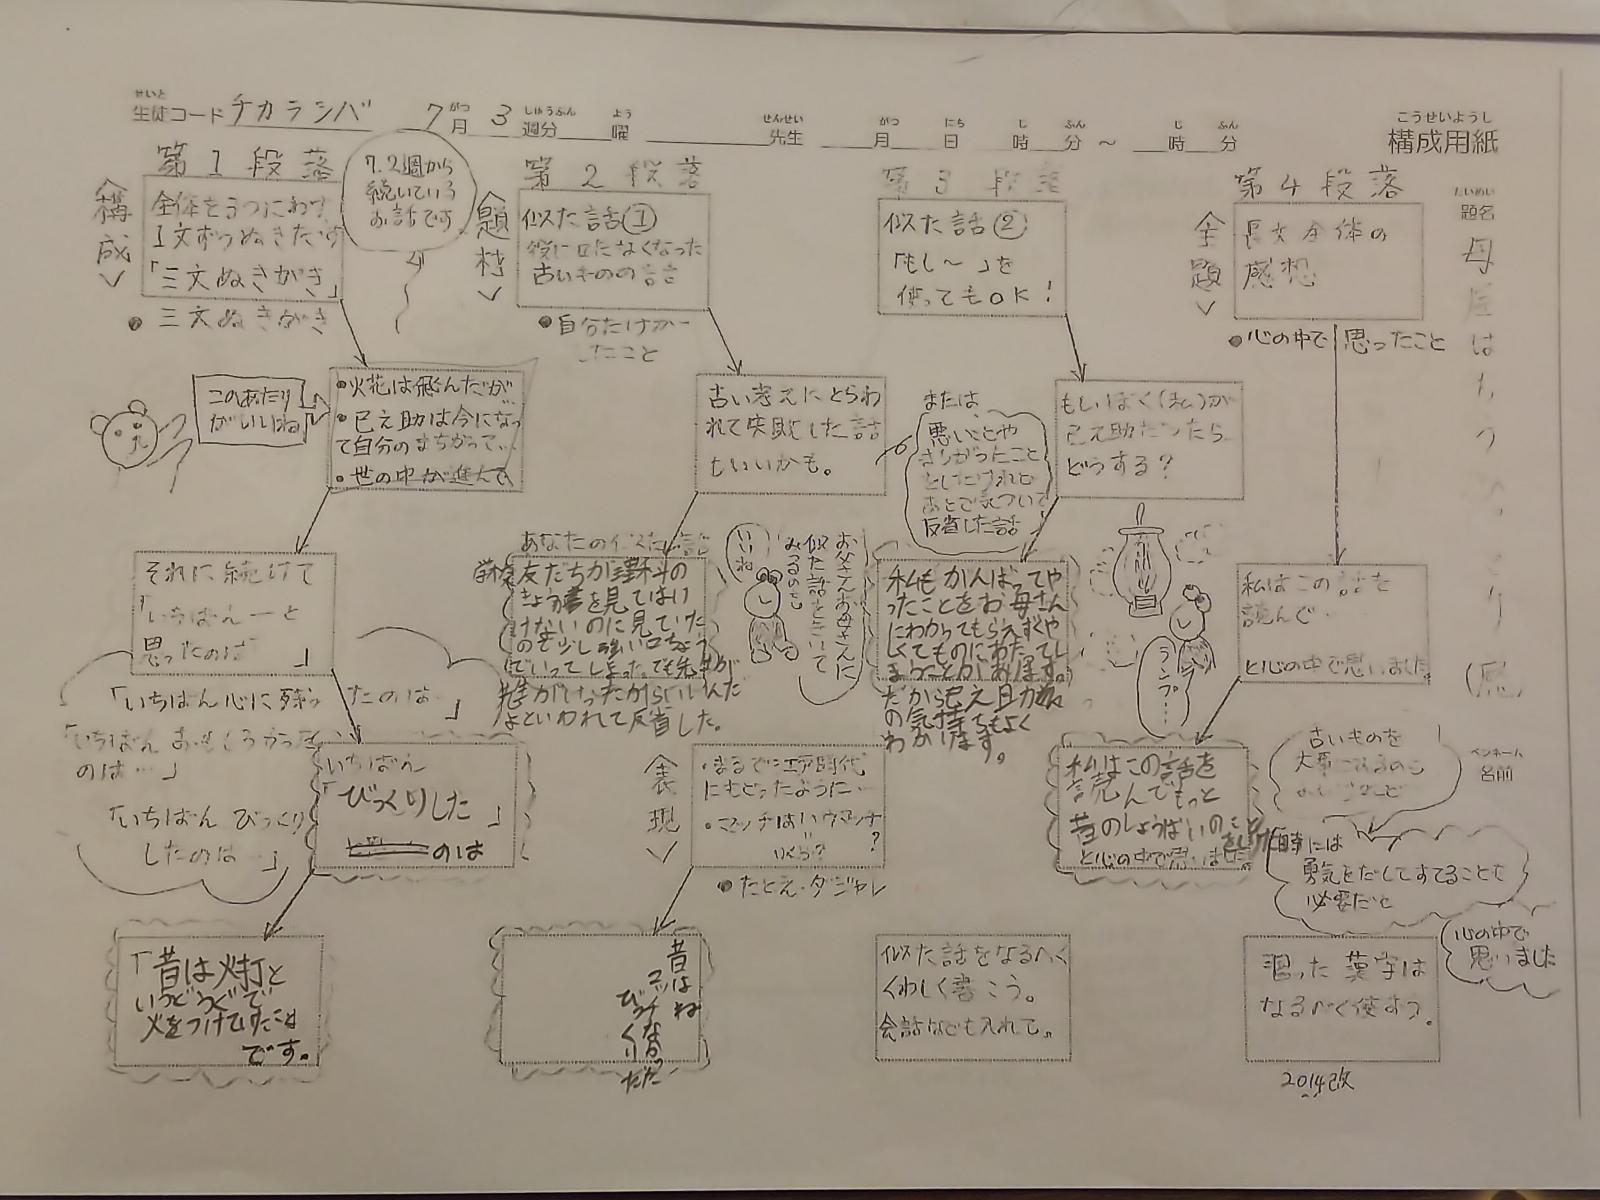 せいと
生徒コード チカラシバ 7月 3週分 曜 先生 月 日 時 分 ～ 時 分
がつ しゅうぶん よう せんせい がつ にち じ ふん じ ふん
こうせいようし
構成用紙
だいめい
題名
ペンネーム
名前
第1段落
＜構成＞
全体を3つにわけ
1文ずつぬきだす
「三文ぬきがき」
●三文ぬきがき
7.2週から
続いている
お話です
このあたり
がいいね
●火花は飛んだが
●巳之助は今になっ
て自分のまちがって…
●世の中が進んで
それに続けて
「いちばん―と
思ったのは 」
「いちばん心に残ったのは…」
「いちばんおもしろかった
のは…」
「いちばん びっくり
したのは…」
いちばん
「びっくりした」
のは
「昔は火打と
いうどうぐで
火をつけてすたことは
です。
第2段落
＜題材＞
似た話①
役に立たなくなった
古いものの話
●自分だけが
したこと
古い考えにとらわ
れて失敗した話
もいいかも。
あなたの似た話
学校で友だちが理科の
きょう書を見てはい
けないのに見ていた
ので少し強い口ちょう
でいってしまった。でも先生が
誰がいったからいいんだ
よといわれて反省した。
いいね
お父さんお母さんに
似た話をきいて
みるのも
＜表現＞
・まるで江戸時代
にもどったように…
・マッチはいウマッチ
＝
いくら？ ？
●たとえ・ダジャレ
昔はね
マッチがなかった
びっくりだ
第3段落
似た話②
「もし～」を
使ってもOK！
または、
悪いことや
まちがったこと
をしたけれど
あとで気づいて
反省した話
もしぼく（私）が
巳之助だったら
どうする？
私もがんばってや
ったことをお母さん
にわかってもらえずくや
しくてものにあたってし
まうことがあります。
だから巳之助
の気持ちもよく
わかります。
ランプ…
似た話をなるべく
くわしく書こう。
会話なども入れて。
第4段落
＜主題＞
長文全体の
感想
●心の中で思ったこと
私はこの話を
読んで…
と心の中で思いました。
私はこの話を
読んでもっと
昔のしょうばいのこと
と心の中で思いました。
古いものを
時には
勇気をだしてすてることも
必要だと
心の中で
思いました
習った漢字は
なるべく使おう。
2014改